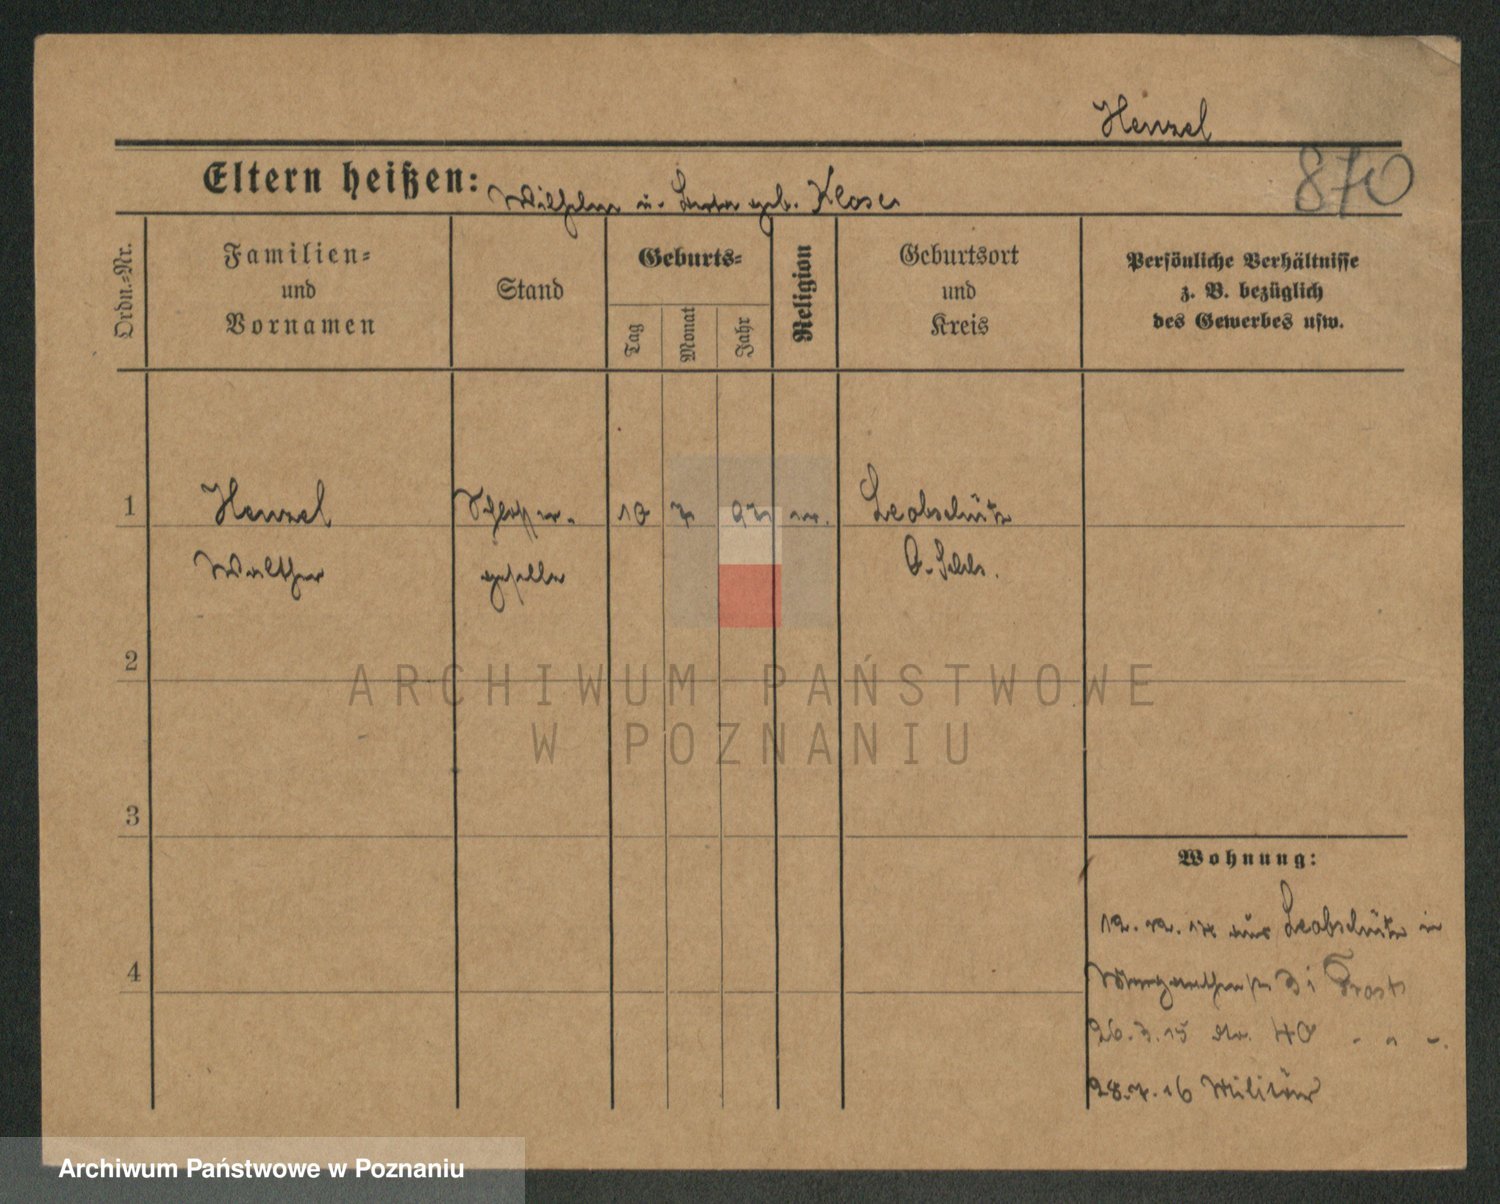 Henzel
870
Eltern heißen: Wilhelm u. geb. Klose
Ordn.-Nr.
Familien-
und
Vornamen
Stand
Geburts-
Tag
Monat
Jahr
Religion
Geburtsort
und
Kreis
Persönliche Verhältnisse
z. B. bezüglich
des Gewerbes usw.
1
Henzel
Schlosser-
10 7
Leobschütz
Walther
geselle
O. Schls.
2
ARCHIWUM PAŃSTWOWE
W POZNANIU
3
Wohnung:
12. 12. 14 aus Leobschütz in
4
3
26.3.15 40 " " "
28.7.16 Militär
Archiwum Państwowe w Poznaniu